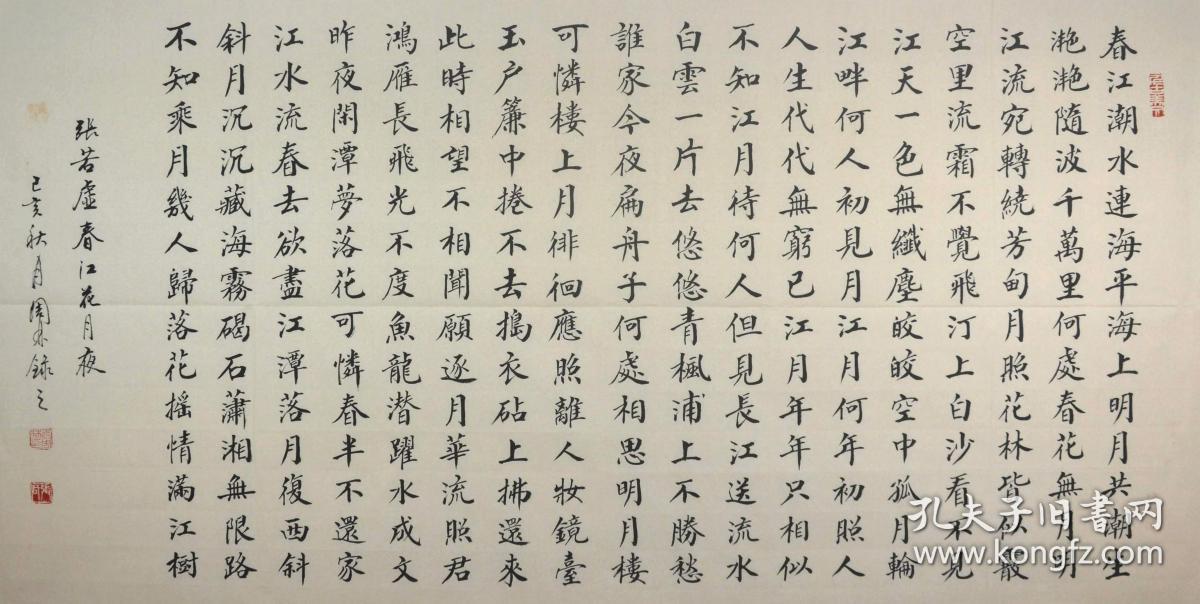 春江潮水連海平海上明月共潮生
滟滟隨波千萬里何處春花無月明
江流宛轉繞芳甸月照花林皆似霰
空里流霜不覺飛汀上白沙看不見
江天一色無纖塵皎皎空中孤月輪
江畔何人初見月江月何年初照人
人生代代無窮已江月年年只相似
不知江月待何人但見長江送流水
白雲一片去悠悠青楓浦上不勝愁
誰家今夜扁舟子何處相思明月樓
可憐樓上月徘徊應照離人妝鏡臺
玉户簾中捲不去搗衣砧上拂還來
此時相望不相聞願逐月華流照君
鴻雁長飛光不度魚龍潜躍水成文
昨夜閑潭夢落花可憐春半不還家
江水流春去欲盡江潭落月復西斜
斜月沉沉藏海霧碣石瀟湘無限路
不知乘月幾人歸落花摇情滿江樹
張若虛春江花月夜
己亥秋月周錄之
孔夫子旧书网
www.kongfz.com